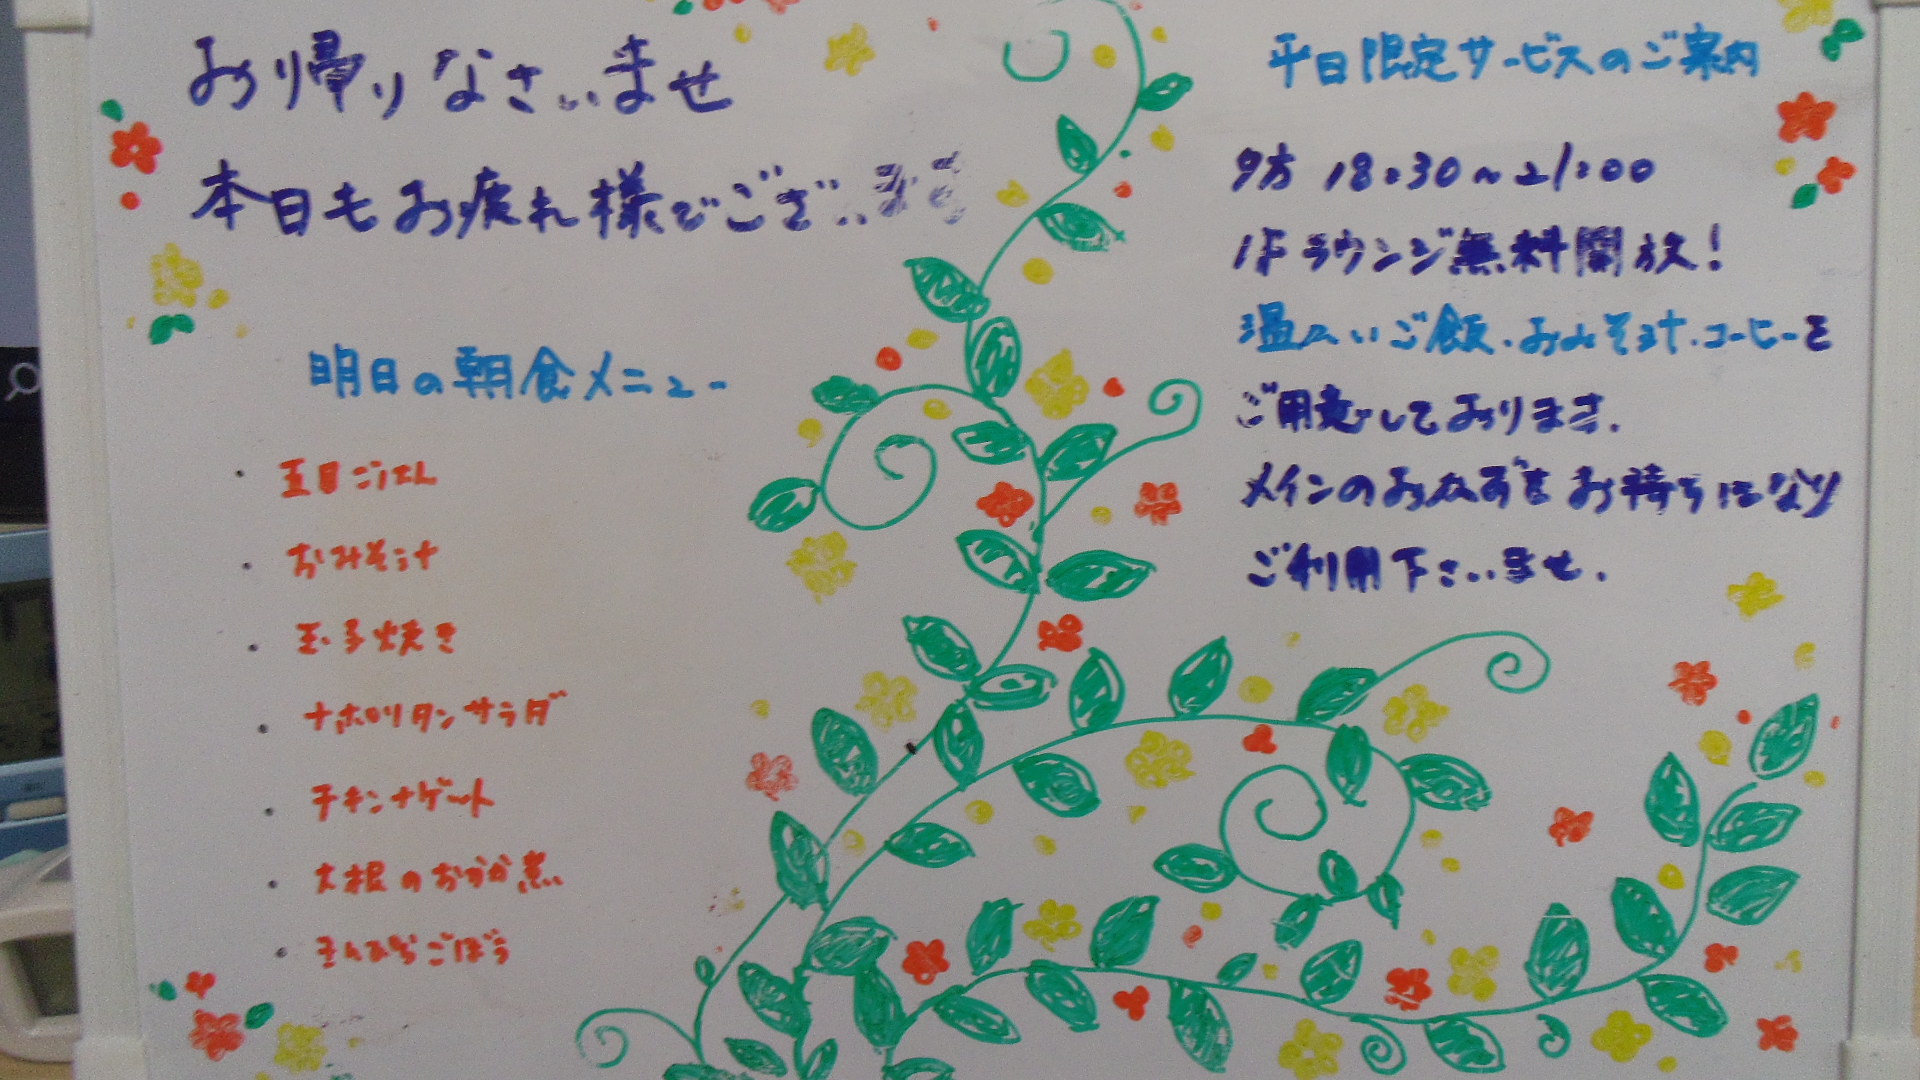 お帰りなさいませ
本日もお疲れ様でございます
明日の朝食メニュー
・五目ごはん
・おみそ汁
・玉子焼き
・ナポリタンサラダ
・チキンナゲット
・大根のおかか煮
・きんぴらごぼう
平日限定サービスのご案内
夕方 18:30~21:00
1Fラウンジ無料開放!
温かいご飯、おみそ汁、コーヒーを
ご用意しております。
メインのおかずをお持ちになり
ご利用下さいませ。